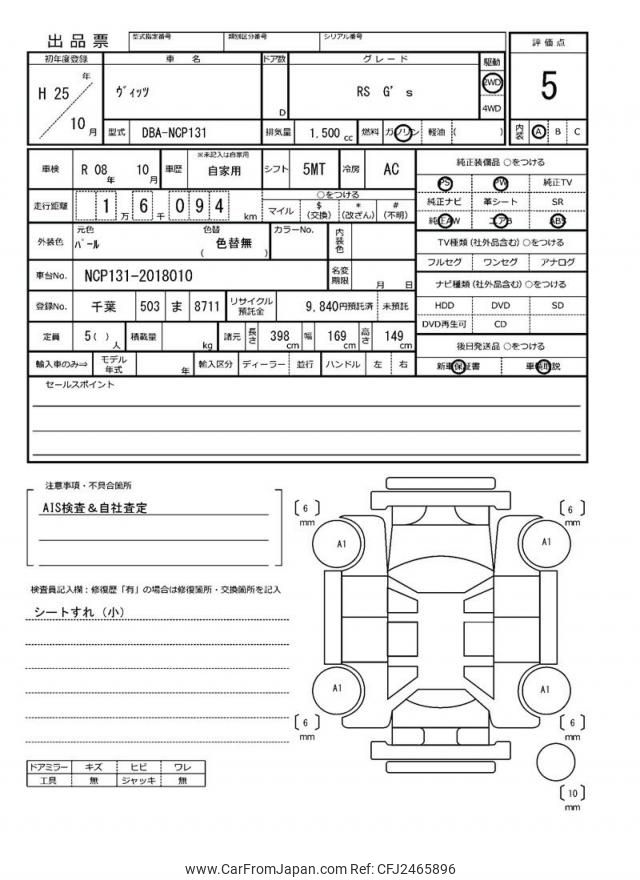 出品票 型式指定番号 類別区分番号 シリアル番号 評価点
初年度登録 車名 ドア数 グレード 駆動
H 25 年 ヴィッツ D RS G's 2WD 5
10 月 4WD
型式 DBA-NCP131 排気量 1.500 cc 燃料 ガソリン 軽油 ( ) 内装 A B C
車検 R 08 年 10 月 車歴 ※未記入は自家用 自家用 シフト 5MT 冷房 AC 純正装備品 ○をつける
PS PW 純正TV
走行距離 1 万 6 千 0 9 4 km ○をつける 純正ナビ 革シート SR
マイル $ (交換) * (改ざん) # (不明) 純正AW エアB ABS
外装色 元色 パール 色替 色替無 ( ) カラーNo. 内装色 TV種類(社外品含む)○をつける
フルセグ ワンセグ アナログ
車台No. NCP131-2018010 名変期限 月 日 ナビ種類(社外品含む)○をつける
登録No. 千葉 503 ま 8711 リサイクル預託金 9,840円預託済 未預託 HDD DVD SD
DVD再生可 CD
定員 5 ( ) 人 積載量 kg 諸元 長さ 398 cm 幅 169 cm 高さ 149 cm 後日発送品 ○をつける
輸入車のみ⇒ モデル年式 年 輸入区分 ディーラー 並行 ハンドル 左 右 新車保証書 車輌取説
セールスポイント
注意事項・不具合箇所
AIS検査&自社査定
検査員記入欄:修復歴「有」の場合は修復箇所・交換箇所を記入
シートすれ(小)
6 mm 6 mm
A1 A1
A1 A1
6 mm 6 mm
10 mm
ドアミラー キズ ヒビ ワレ
工具 無 ジャッキ 無
www.CarFromJapan.com Ref: CFJ2465896